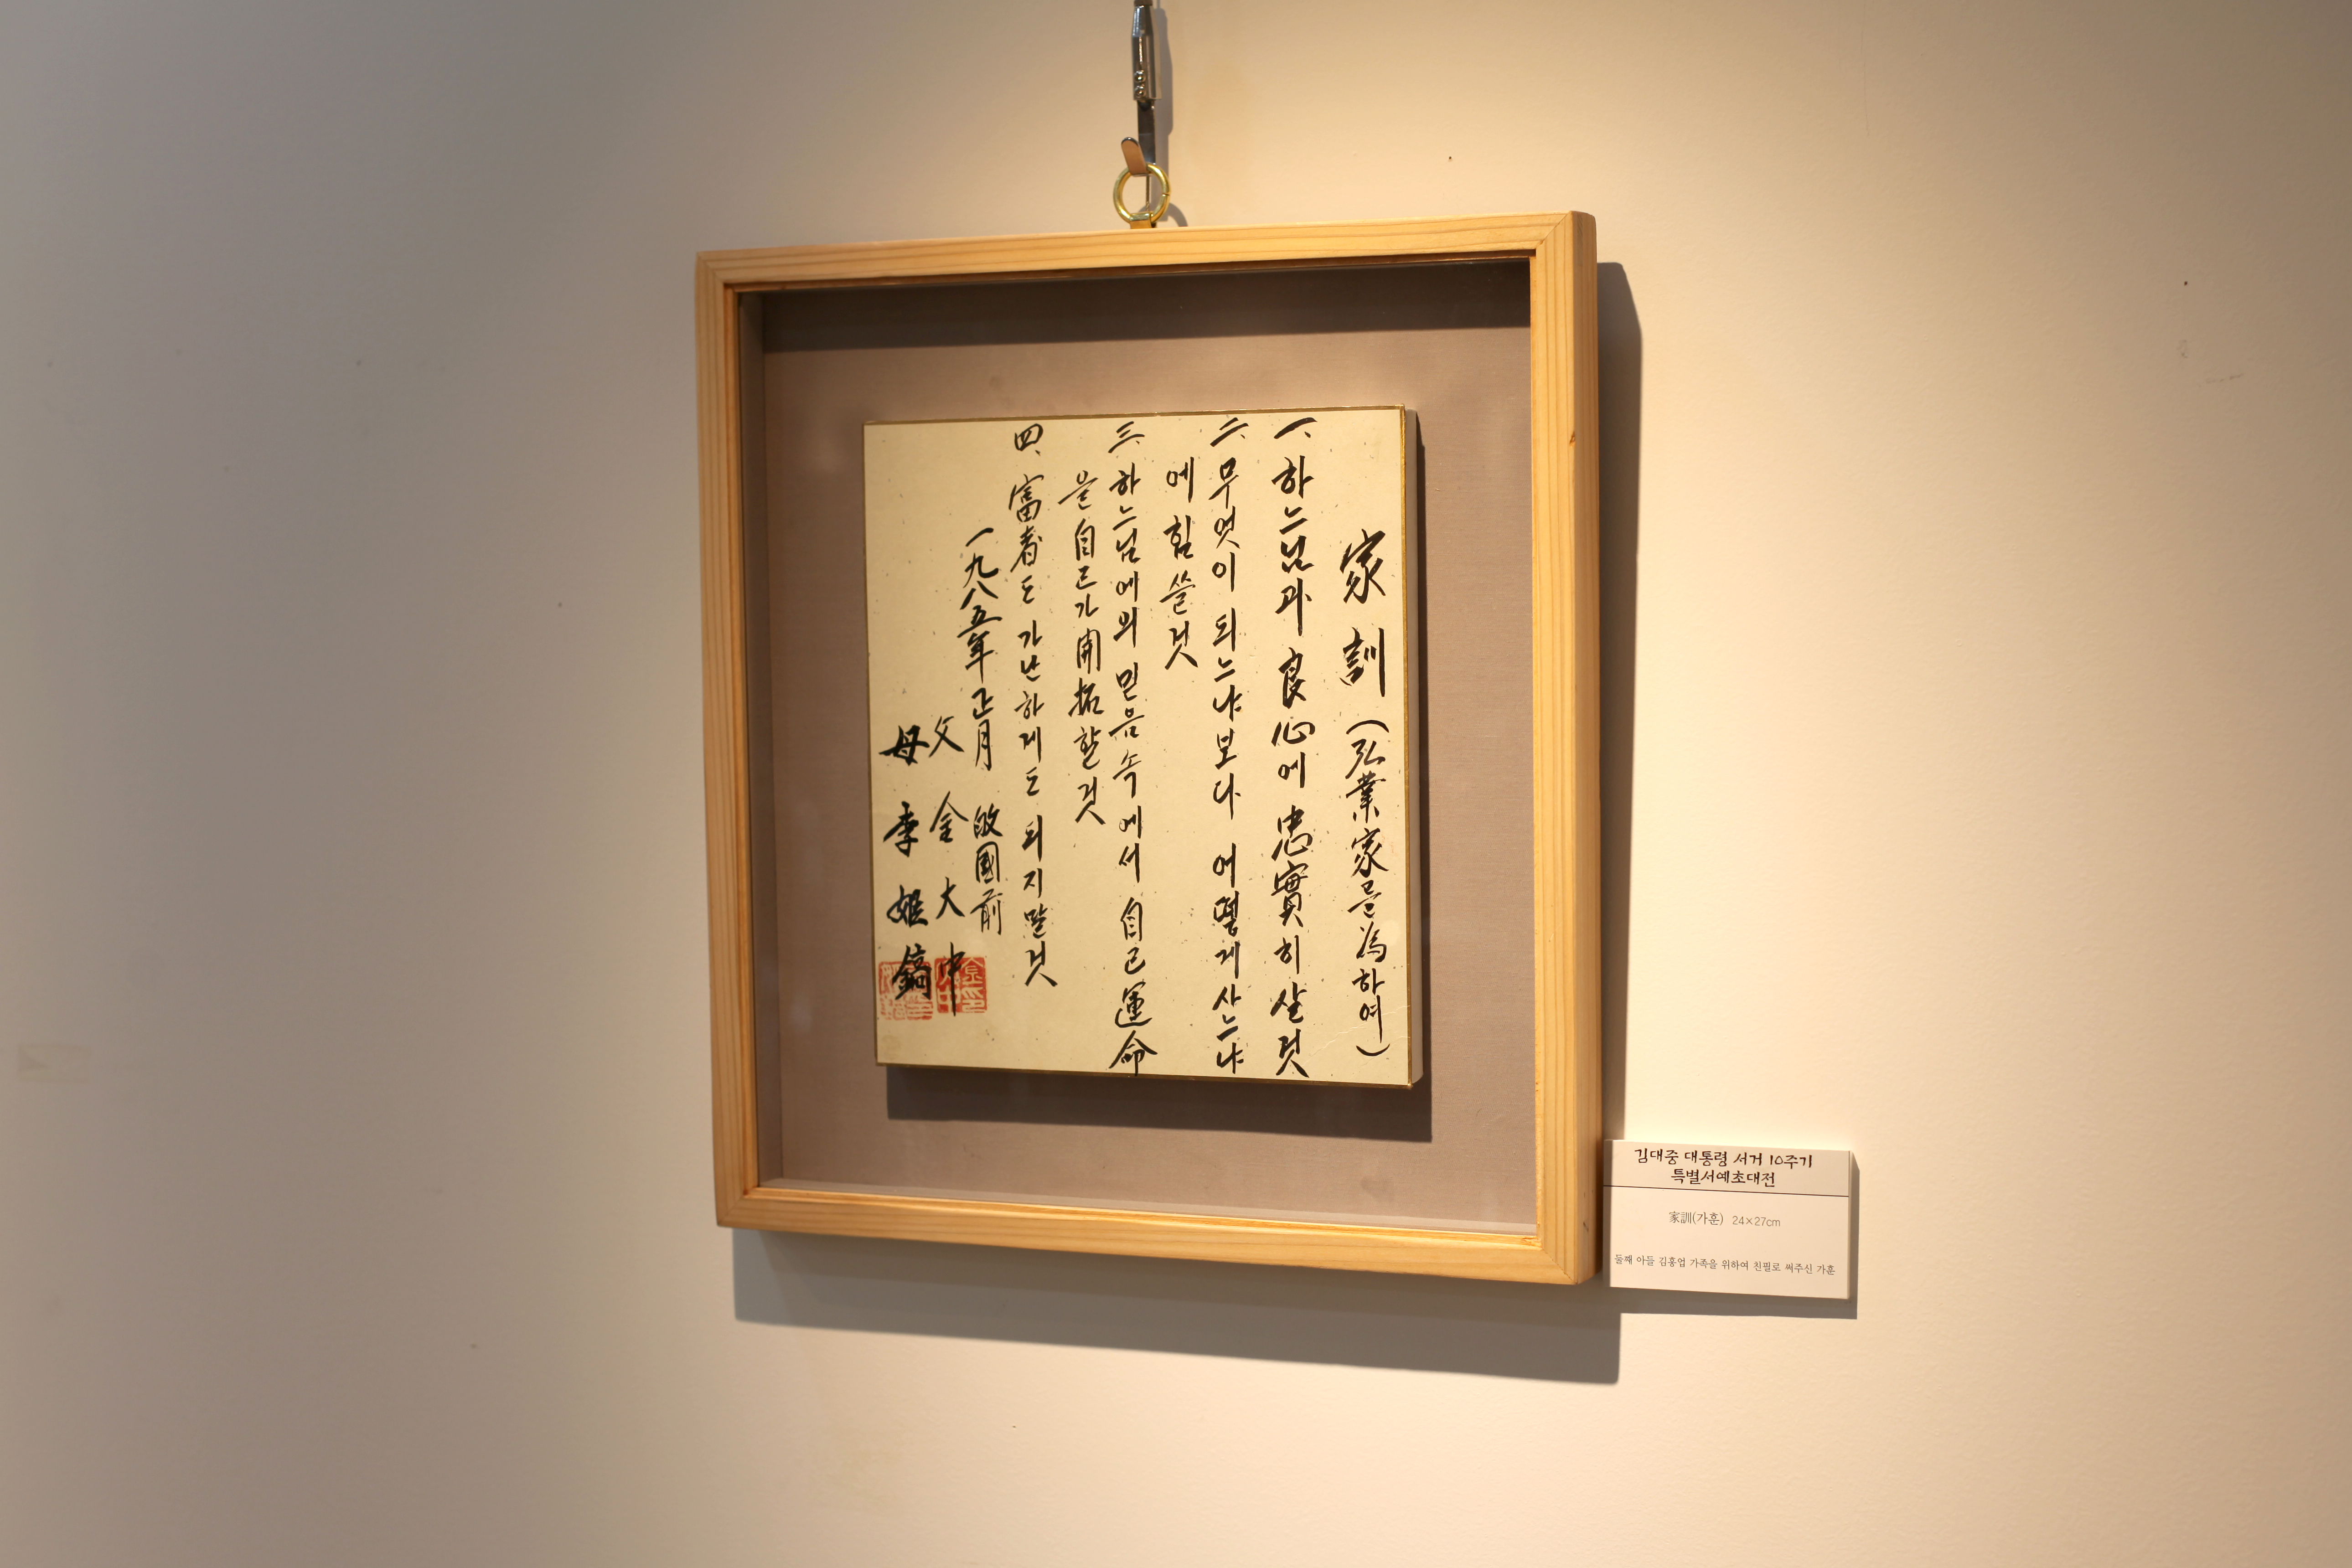 家訓(弘業家를 為하여)
一、하느님과 良心에 忠實히 살 것
二、무엇이 되느냐 보다 어떻게 사느냐
에 힘쓸 것
三、하느님에의 믿음 속에서 自己 運命
을 自己가 開拓할 것
四、富者도 가난하게도 되지 말 것
一九八五年 正月 敀國前
父 金大中
母 李姬鎬
김대중 대통령 서거 10주기
특별서예초대전
家訓(가훈) 24×27cm
둘째 아들 김홍업 가족을 위하여 친필로 써주신 가훈